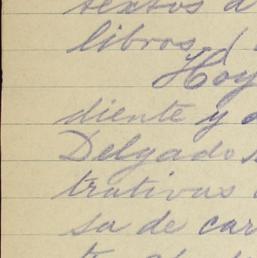 textos d
libros, (
Hoy
diente y
Delgado
trativas
sa de car